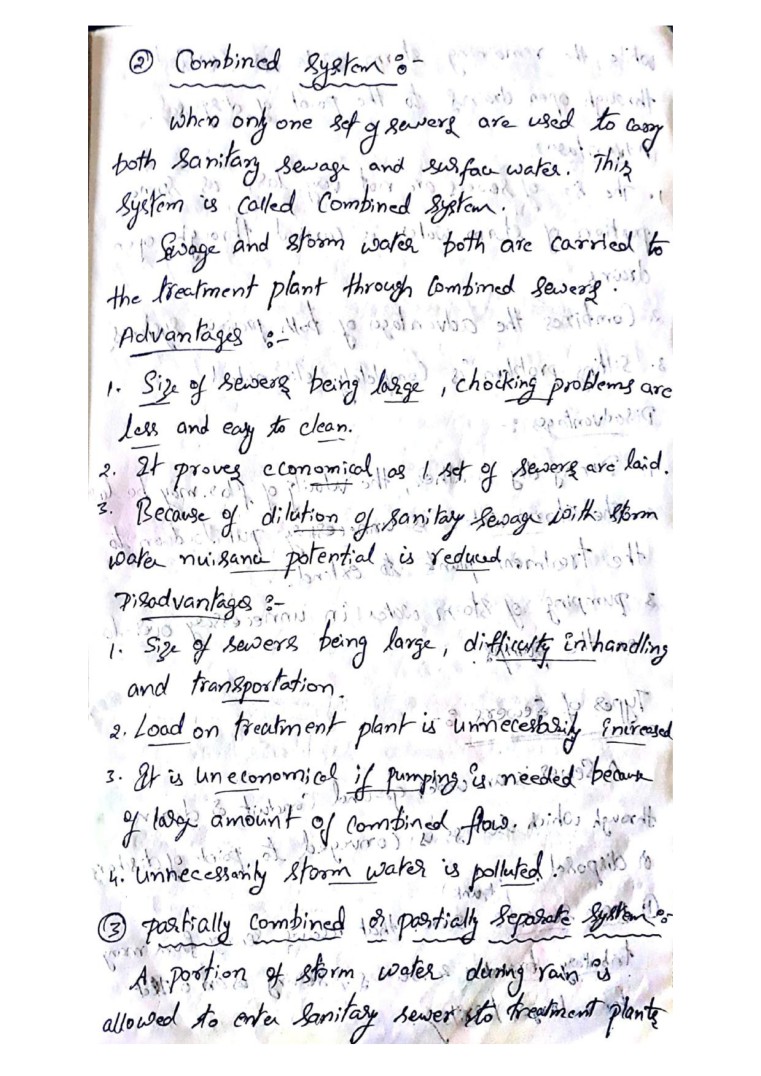 ② Combined System :-
When only one set of sewers are used to carry
both Sanitary Sewage and surface water. This
System is called Combined System.
Sewage and storm water both are carried to
the treatment plant through Combined Sewers.
Advantages :-
1. Size of sewers being large, chocking problems are
less and easy to clean.
2. It proves economical as 1 set of sewers are laid.
3. Because of dilution of sanitary sewage with storm
water nuisance potential is reduced
Disadvantages :-
1. Size of sewers being large, difficulty in handling
and transportation.
2. Load on treatment plant is unnecessarily increased
3. It is uneconomical if pumping is needed because
of large amount of combined flow.
4. Unnecessarily storm water is polluted.
③ partially combined or partially Separate System :-
A portion of storm water during rain is
allowed to enter Sanitary sewer to treatment plants